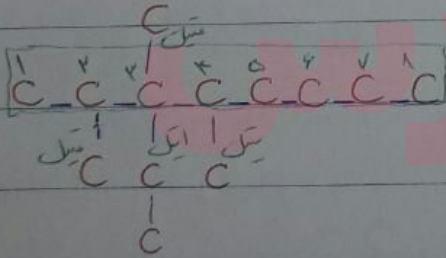 C
متیل
۱ ۲ ۳ ۴ ۵ ۶ ۷ ۸
C_C_C_C_C_C_C_C
متیل اتیل متیل
C C C
C